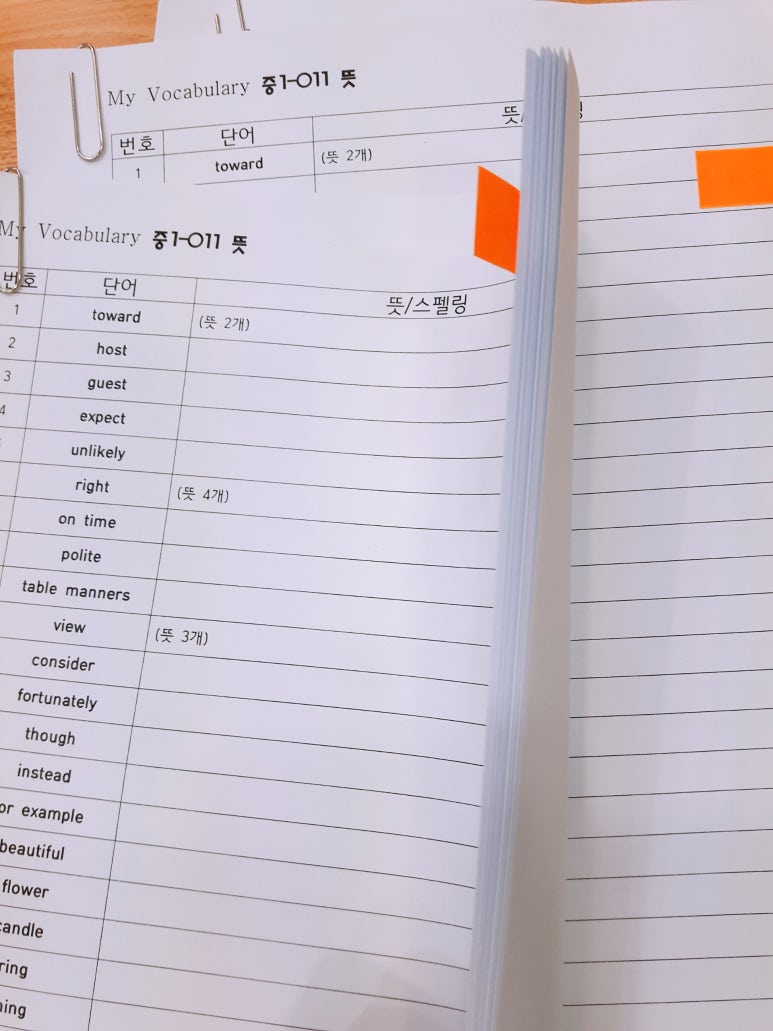 My Vocabulary 중1-011 뜻
번호 단어
1 toward (뜻 2개)
My Vocabulary 중1-011 뜻
번호 단어 뜻/스펠링
1 toward (뜻 2개)
2 host
3 guest
4 expect
unlikely
right (뜻 4개)
on time
polite
table manners
view (뜻 3개)
consider
fortunately
though
instead
or example
beautiful
flower
candle
ring